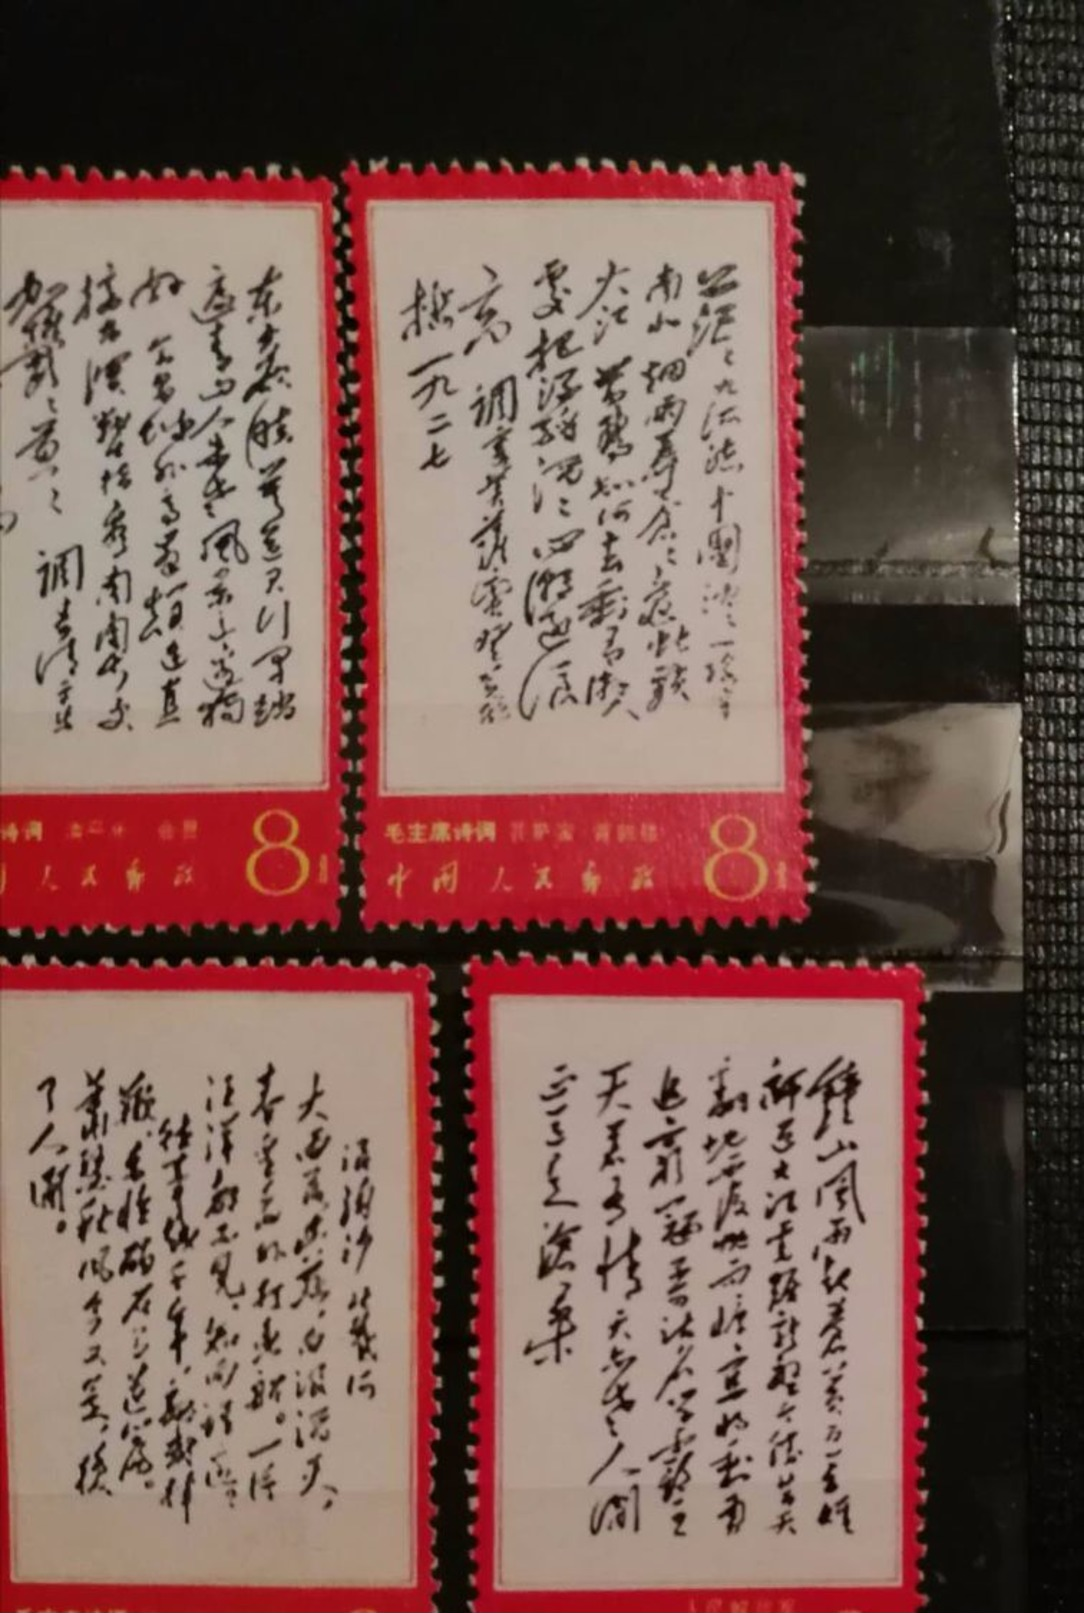 东方欲晓莫道君行早踏
遍青山人未老风景这边独
好 会昌城外高峰颠连直
接东溟战士指看南粤更
加郁郁葱葱 调
诗词 清平乐 会昌
人民邮政
8
茫茫九派流中国沉沉一线穿
南北烟雨莽苍苍龟蛇锁
大江 黄鹤知何去剩有游人
处把酒酹滔滔心潮逐浪
高 调寄菩萨蛮 登黄鹤
楼一九二七
毛主席诗词 菩萨蛮 黄鹤楼
中国人民邮政
8
浪淘沙 北戴河
大雨落幽燕,白浪滔天,
秦皇岛外打鱼船。一片
汪洋都不见,知向谁边?
往事越千年,魏武挥
鞭,东临碣石有遗篇。
萧瑟秋风今又是,换
了人间。
钟山风雨起苍黄百万雄
师过大江虎踞龙盘今胜昔天
翻地覆慨而慷宜将剩勇
追穷寇不可沽名学霸王
天若有情天亦老人间
正道是沧桑
人民解放军